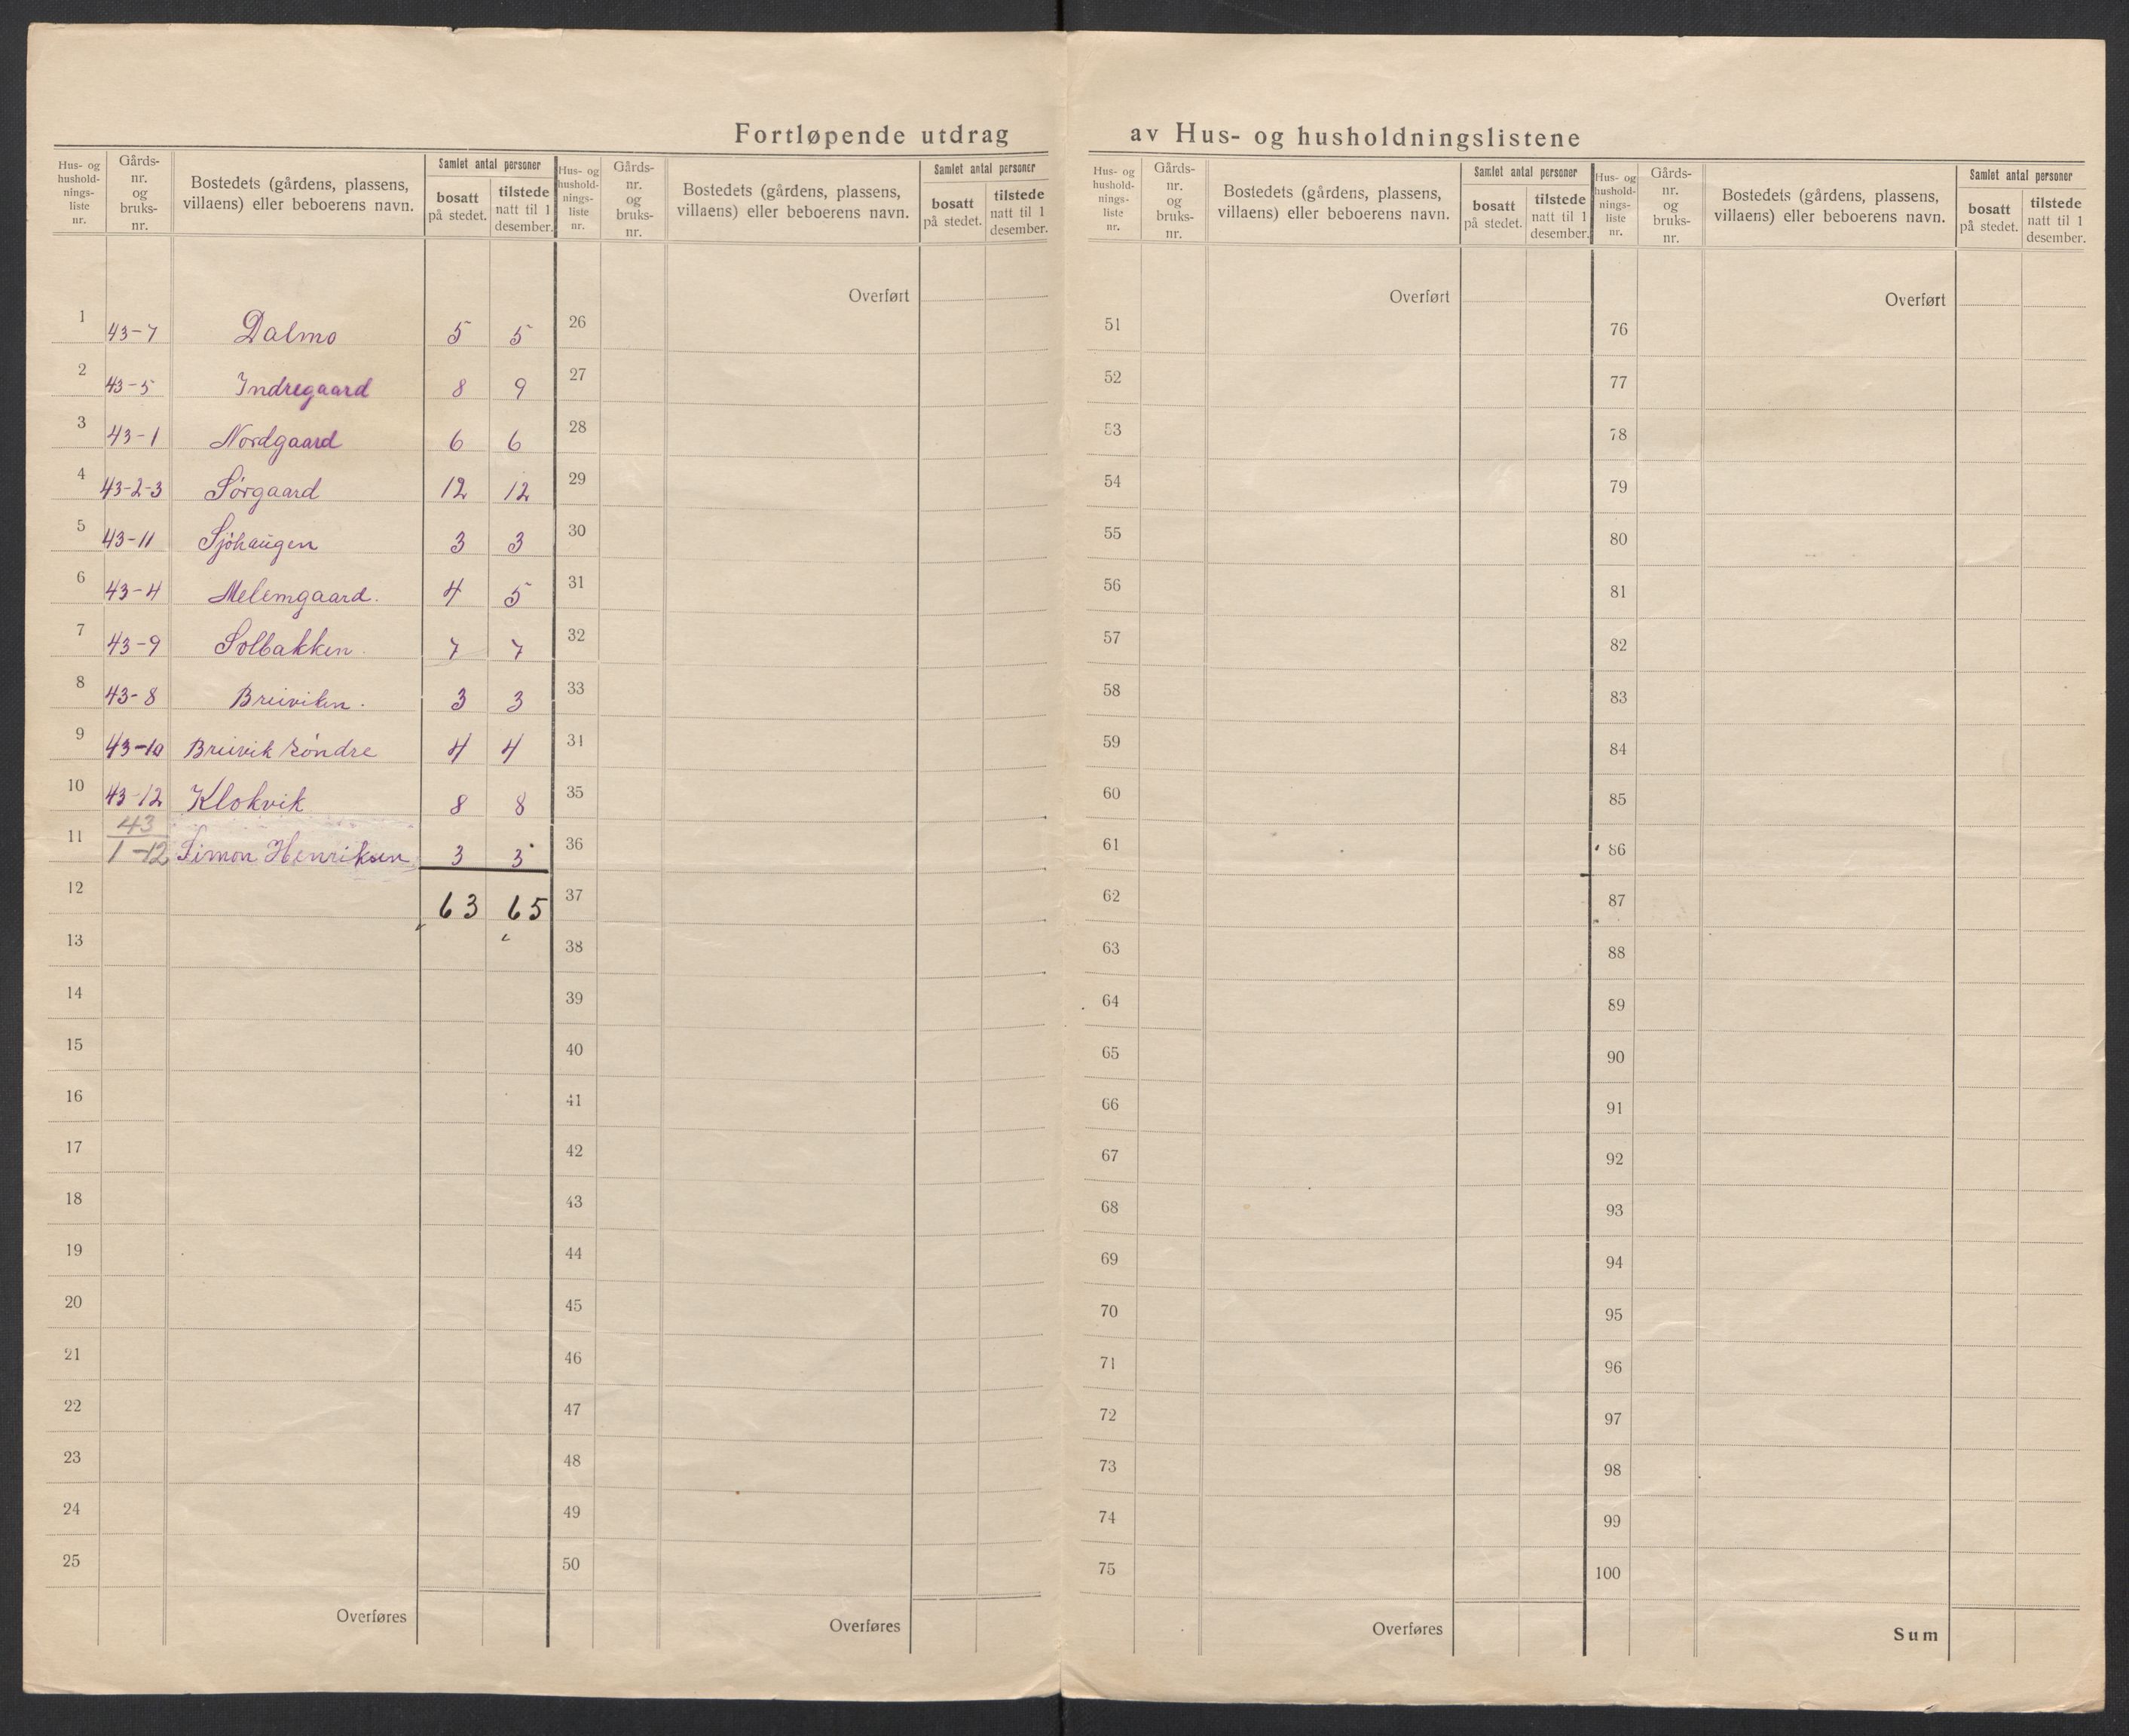 Fortløpende utdrag av Hus- og husholdningslistene
Hus- og hushold- nings- liste nr.
Gårds- nr. og bruks- nr.
Bostedets (gårdens, plassens, villaens) eller beboerens navn.
Samlet antal personer
bosatt på stedet.
tilstede natt til 1 desember.
Hus- og hushold- nings- liste nr.
Gårds- nr. og bruks- nr.
Bostedets (gårdens, plassens, villaens) eller beboerens navn.
Samlet antal personer
bosatt på stedet.
tilstede natt til 1 desember.
Hus- og hushold- nings- liste nr.
Gårds- nr. og bruks- nr.
Bostedets (gårdens, plassens, villaens) eller beboerens navn.
Samlet antal personer
bosatt på stedet.
tilstede natt til 1 desember.
Hus- og hushold- nings- liste nr.
Gårds- nr. og bruks- nr.
Bostedets (gårdens, plassens, villaens) eller beboerens navn.
Samlet antal personer
bosatt på stedet.
tilstede natt til 1 desember.
1 43-7 Dalmo 5 5
2 43-5 Indregaard 8 9
3 43-1 Nordgaard 6 6
4 43-2-3 Sørgaard 12 12
5 43-11 Sjöhaugen 3 3
6 43-4 Melemgaard. 4 5
7 43-9 Solbakken. 7 7
8 43-8 Breiviken. 3 3
9 43-10 Breivik söndre 4 4
10 43-12 Klokvik 8 8
11 43 1-12 Simon Henriksen 3 3
12 63 65
13
14
15
16
17
18
19
20
21
22
23
24
25
Overføres
Overført
26
27
28
29
30
31
32
33
31
35
36
37
38
39
40
41
42
43
44
45
46
47
48
49
50
Overføres
Overført
51
52
53
54
55
56
57
58
59
60
61
62
63
64
65
66
67
68
69
70
71
72
73
74
75
Overføres
Overført
76
77
78
79
80
81
82
83
84
85
86
87
88
89
90
91
92
93
94
95
96
97
98
99
100
Sum